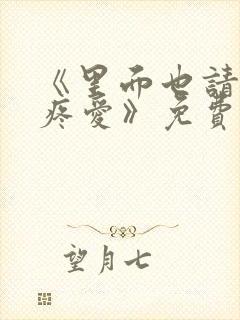 《里面也請
疼愛》免費
望月七